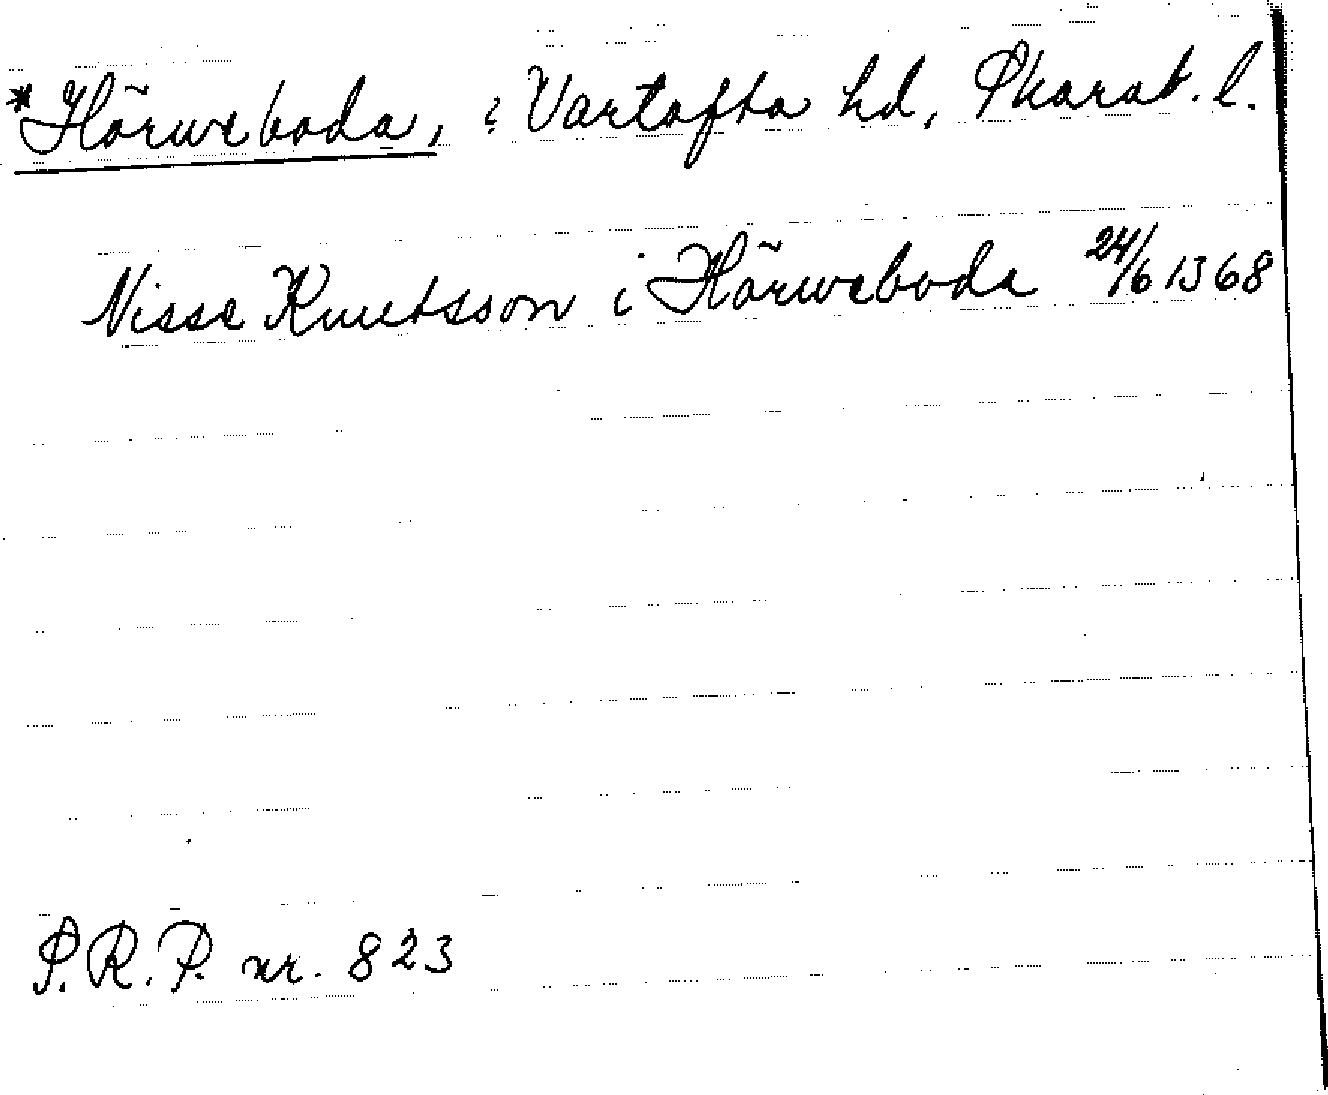 *Hörweboda, i Vartofta hd, Skarab. l.
Nisse Knutsson i Hörweboda 24/6 1368
S.R.P. nr. 823